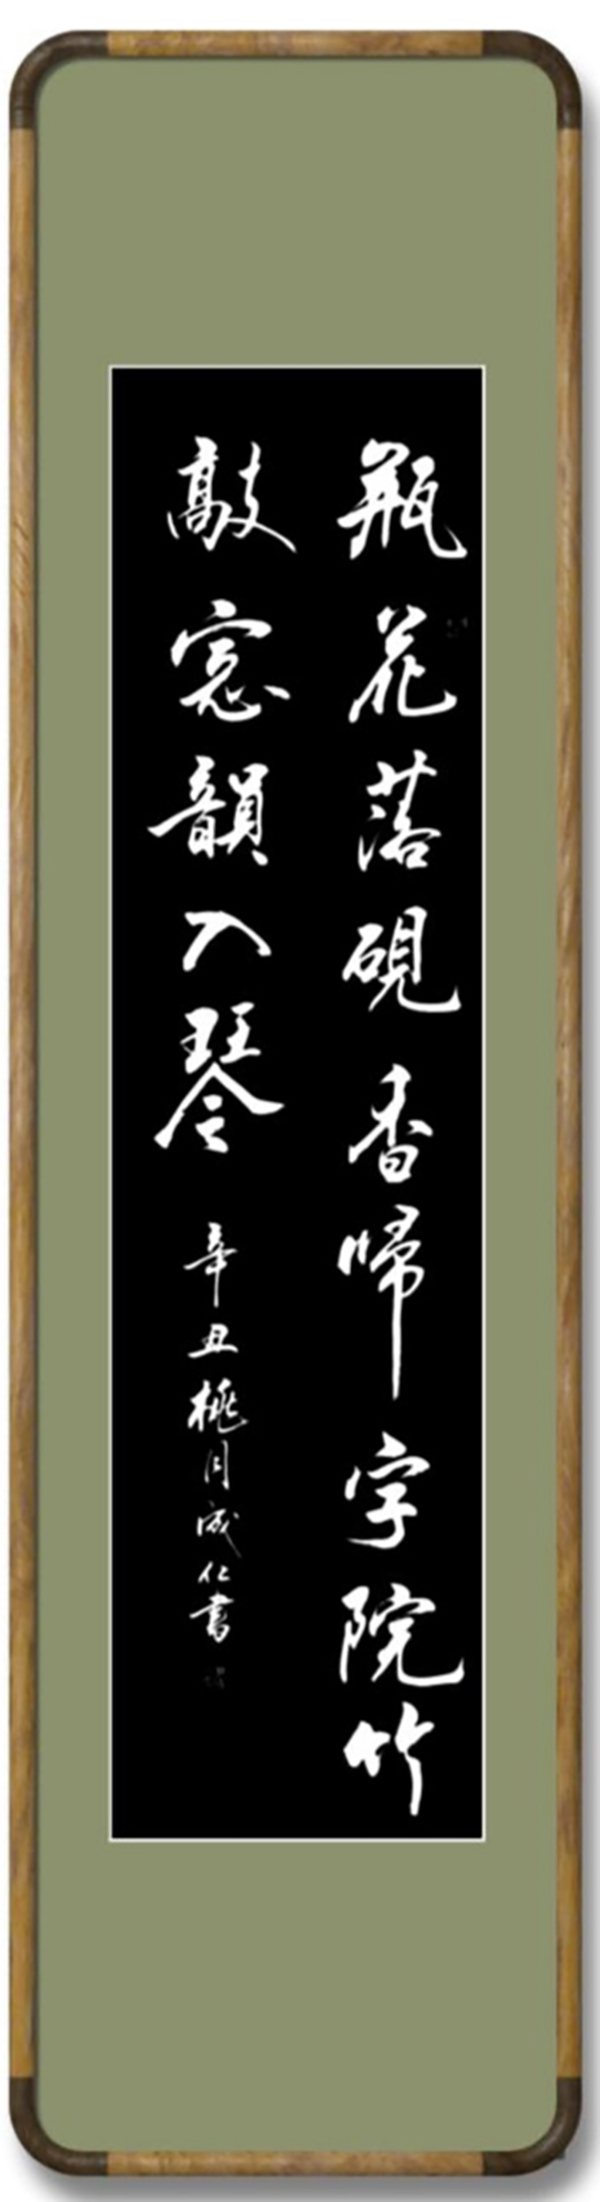 瓶花落硯香歸字院竹
敲窗韻入琴 辛丑桃月成仁書